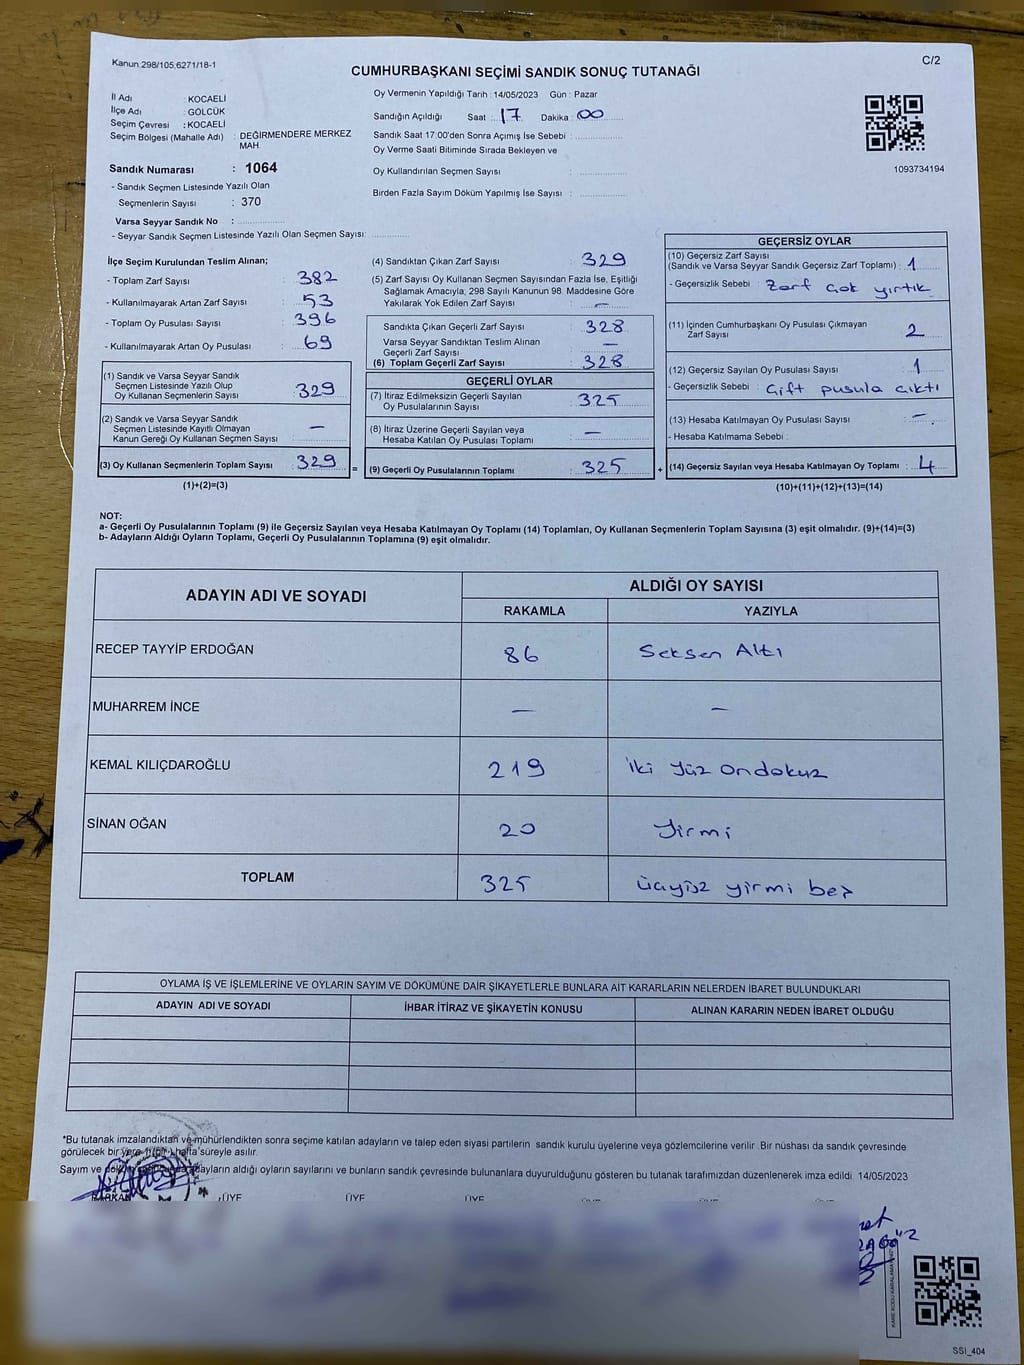 Kanun.298/105,6271/18-1
C/2
CUMHURBAŞKANI SEÇİMİ SANDIK SONUÇ TUTANAĞI
İl Adı : KOCAELİ
İlçe Adı : GÖLCÜK
Seçim Çevresi : KOCAELİ
Seçim Bölgesi (Mahalle Adı) : DEĞİRMENDERE MERKEZ
MAH.
Sandık Numarası : 1064
- Sandık Seçmen Listesinde Yazılı Olan
Seçmenlerin Sayısı : 370
Varsa Seyyar Sandık No :
- Seyyar Sandık Seçmen Listesinde Yazılı Olan Seçmen Sayısı:
Oy Vermenin Yapıldığı Tarih : 14/05/2023 Gün : Pazar
Sandığın Açıldığı Saat : 17 Dakika : 00
Sandık Saat 17:00'den Sonra Açımış İse Sebebi :
Oy Verme Saati Bitiminde Sırada Bekleyen ve
Oy Kullandırılan Seçmen Sayısı :
Birden Fazla Sayım Döküm Yapılmış İse Sayısı :
1093734194
İlçe Seçim Kurulundan Teslim Alınan;
- Toplam Zarf Sayısı : 382
- Kullanılmayarak Artan Zarf Sayısı : 53
- Toplam Oy Pusulası Sayısı : 396
- Kullanılmayarak Artan Oy Pusulası : 69
(1) Sandık ve Varsa Seyyar Sandık
Seçmen Listesinde Yazılı Olup
Oy Kullanan Seçmenlerin Sayısı : 329
(2) Sandık ve Varsa Seyyar Sandık
Seçmen Listesinde Kayıtlı Olmayan
Kanun Gereği Oy Kullanan Seçmen Sayısı : —
(3) Oy Kullanan Seçmenlerin Toplam Sayısı : 329
(1)+(2)=(3)
=
(4) Sandıktan Çıkan Zarf Sayısı : 329
(5) Zarf Sayısı Oy Kullanan Seçmen Sayısından Fazla İse, Eşitliği
Sağlamak Amacıyla, 298 Sayılı Kanunun 98. Maddesine Göre
Yakılarak Yok Edilen Zarf Sayısı : —
Sandıkta Çıkan Geçerli Zarf Sayısı : 328
Varsa Seyyar Sandıktan Teslim Alınan
Geçerli Zarf Sayısı : —
(6) Toplam Geçerli Zarf Sayısı : 328
GEÇERLİ OYLAR
(7) İtiraz Edilmeksizin Geçerli Sayılan
Oy Pusulalarının Sayısı : 325
(8) İtiraz Üzerine Geçerli Sayılan veya
Hesaba Katılan Oy Pusulası Toplamı : —
(9) Geçerli Oy Pusulalarının Toplamı : 325
+
GEÇERSİZ OYLAR
(10) Geçersiz Zarf Sayısı
(Sandık ve Varsa Seyyar Sandık Geçersiz Zarf Toplamı) : 1
- Geçersizlik Sebebi : Zarf Çok yırtık
(11) İçinden Cumhurbaşkanı Oy Pusulası Çıkmayan
Zarf Sayısı : 2
(12) Geçersiz Sayılan Oy Pusulası Sayısı : 1
- Geçersizlik Sebebi : Çift pusula çıktı
(13) Hesaba Katılmayan Oy Pusulası Sayısı : —
- Hesaba Katılmama Sebebi :
(14) Geçersiz Sayılan veya Hesaba Katılmayan Oy Toplamı : 4
(10)+(11)+(12)+(13)=(14)
NOT:
a- Geçerli Oy Pusulalarının Toplamı (9) ile Geçersiz Sayılan veya Hesaba Katılmayan Oy Toplamı (14) Toplamları, Oy Kullanan Seçmenlerin Toplam Sayısına (3) eşit olmalıdır. (9)+(14)=(3)
b- Adayların Aldığı Oyların Toplamı, Geçerli Oy Pusulalarının Toplamına (9) eşit olmalıdır.
ADAYIN ADI VE SOYADI
ALDIĞI OY SAYISI
RAKAMLA YAZIYLA
RECEP TAYYİP ERDOĞAN 86 Seksen Altı
MUHARREM İNCE — —
KEMAL KILIÇDAROĞLU 219 İki Yüz Ondokuz
SİNAN OĞAN 20 Yirmi
TOPLAM 325 üçyüz yirmi beş
OYLAMA İŞ VE İŞLEMLERİNE VE OYLARIN SAYIM VE DÖKÜMÜNE DAİR ŞİKAYETLERLE BUNLARA AİT KARARLARIN NELERDEN İBARET BULUNDUKLARI
ADAYIN ADI VE SOYADI İHBAR İTİRAZ VE ŞİKAYETİN KONUSU ALINAN KARARIN NEDEN İBARET OLDUĞU
*Bu tutanak imzalandıktan ve mühürlendikten sonra seçime katılan adayların ve talep eden siyasi partilerin sandık kurulu üyelerine veya gözlemcilerine verilir. Bir nüshası da sandık çevresinde
görülecek bir yere 1 (bir) hafta süreyle asılır.
Sayım ve adayların aldığı oyların sayılarını ve bunların sandık çevresinde bulunanlara duyurulduğunu gösteren bu tutanak tarafımızdan düzenlenerek imza edildi. 14/05/2023
BAŞKAN ÜYE ÜYE ÜYE
SSI_404